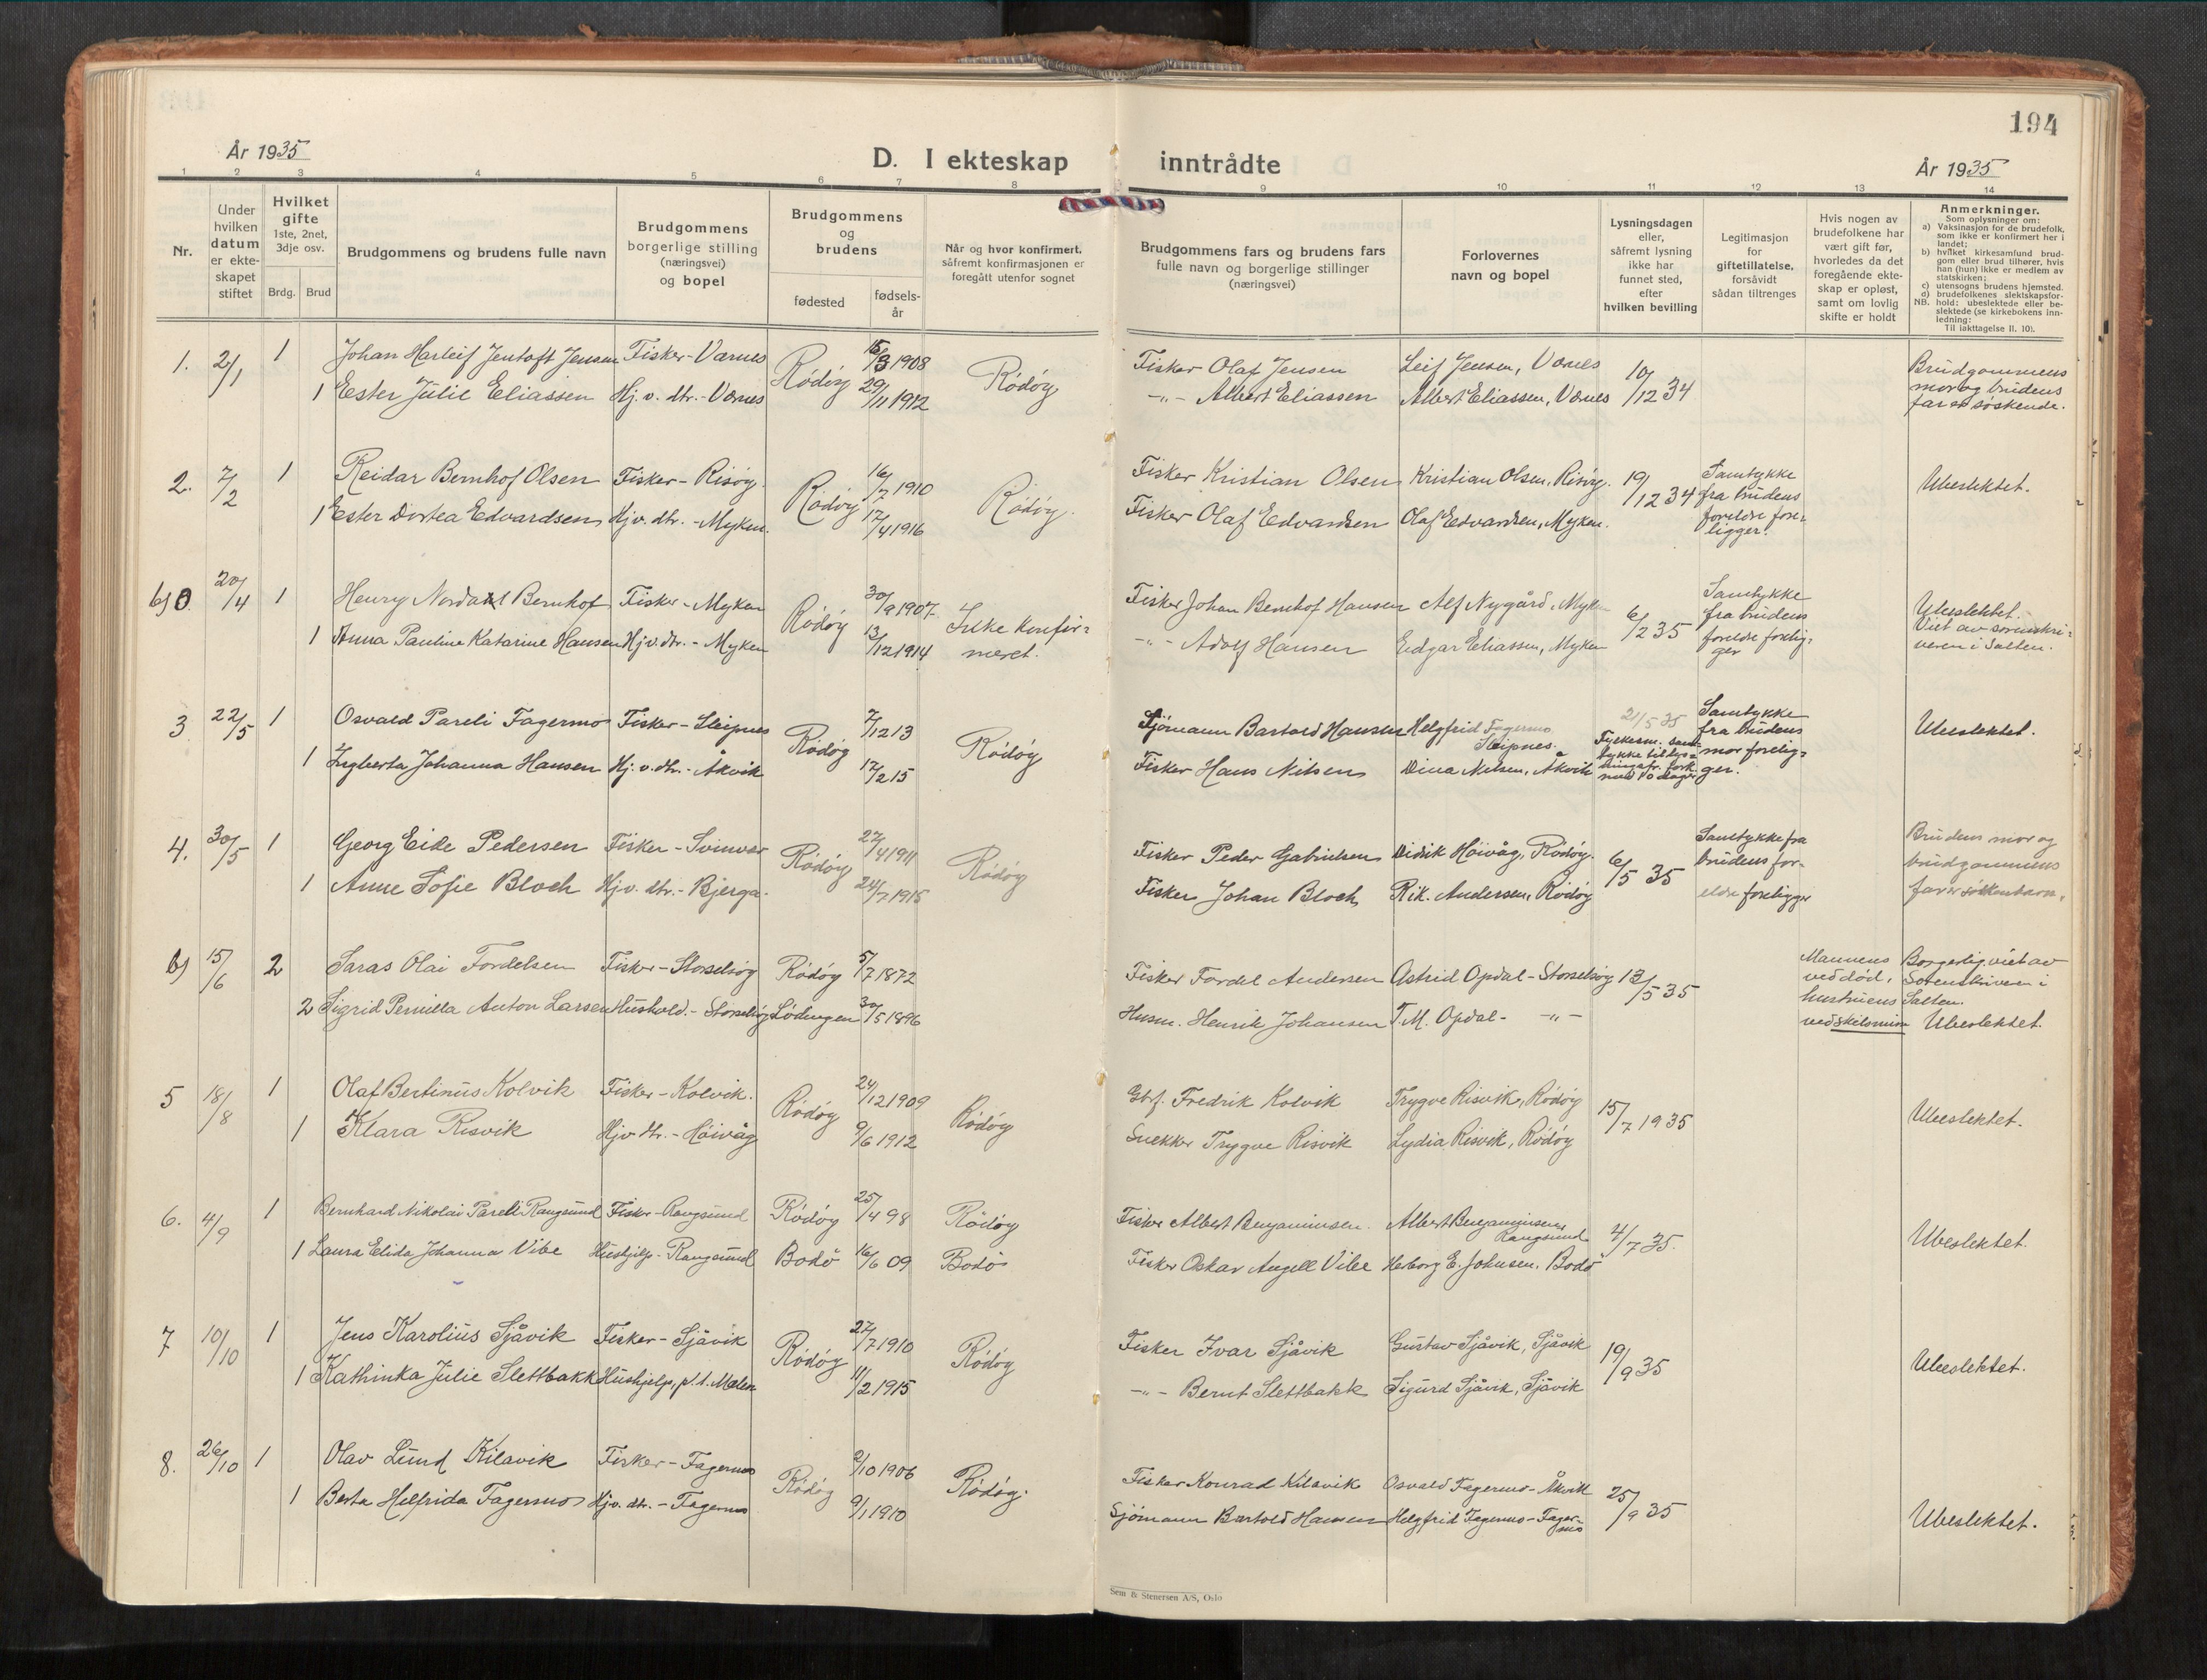 194
År 1935
D. I ekteskap
inntrådte
År 1935
1 2 3 4 5 6 7 8 9 10 11 12 13 14
Nr.
Under hvilken datum er ekteskapet stiftet
Hvilket gifte 1ste, 2net, 3dje osv.
Brdg. Brud
Brudgommens og brudens fulle navn
Brudgommens borgerlige stilling (næringsvei) og bopel
Brudgommens og brudens
fødested
fødselsår
Når og hvor konfirmert, såfremt konfirmasjonen er foregått utenfor sognet
Brudgommens fars og brudens fars fulle navn og borgerlige stillinger (næringsvei)
Forlovernes navn og bopel
Lysningsdagen eller, såfremt lysning ikke har funnet sted, efter hvilken bevilling
Legitimasjon for giftetillatelse, forsåvidt sådan tiltrenges
Hvis nogen av brudefolkene har vært gift før, hvorledes da det foregående ekteskap er opløst, samt om lovlig skifte er holdt
Anmerkninger.
Som oplysninger om:
a) Vaksinasjon for de brudefolk, som ikke er konfirmert her i landet;
b) hvilket kirkesamfund brudgom eller brud tilhører, hvis han (hun) ikke er medlem av statskirken;
c) utensogns brudens hjemsted.
d) brudefolkenes slektskapsforhold: ubeslektede eller beslektede (se kirkebokens innledning:
NB.
Til iakttagelse II. 10).
1. 2/1 1 Johan Harleif Jentoft Jensen Fisker - Værnes Rødøy 15/3 1908 Rødøy Fisker Olaf Jensen Leif Jensen, Værnes 10/12 34 Brudgommens mor og brudens far er søskende.
1 Ester Julie Eliassen Hj. v. dtr. - Værnes 29/11 1912 -"- Albert Eliassen Albert Eliassen, Værnes
2. 7/2 1 Reidar Bernhof Olsen Fisker - Risøy. Rødøy 16/7 1910 Rødøy. Fisker Kristian Olsen Kristian Olsen, Risøy. 19/12 34 Samtykke fra brudens foreldre foreligger. Ubeslektet.
1 Ester Dortea Edvardsen Hjv. dtr. - Myken. 17/4 1916 Fisker Olaf Edvardsen Olaf Edvardsen, Myken.
b) 0 20/4 1 Henry Nordahl Bernhof Fisker - Myken Rødøy 30/9 1907. Ikke konfirmeret. Fisker Johan Bernhof Hansen Alf Nygård, Myken 6/2 35 Samtykke fra brudens foreldre foreligger Ubeslektet. Viet av sorenskriveren i Salten.
1 Anna Pauline Katarine Hansen Hjv. dtr. - Myken 13/12 1914 -"- Adolf Hansen Edgar Eliassen, Myken
3 22/5 1 Osvald Pareli Fagermo Fisker - Sleipnes Rødøy 7/12 13 Rødøy Sjømann Bartold Hansen Helgfrid Fagermo Sleipnes. 21/5 35 Samtykke fra brudens mor foreligger. Ubeslektet.
1 Ingberta Johanna Hansen Hj. v. dtr. - Åkvik 17/2 15 Fisker Hans Nilsen Dina Nilsen, Åkvik
4. 30/5 1 Georg Eide Pedersen Fisker - Svinvær Rødøy 27/4 1911 Rødøy Fisker Peder Gabrielsen Didrik Høivåg, Rødøy. 6/5 35 Samtykke fra brudens foreldre foreligger Brudens mor og brudgommens far er søskenbarn.
1 Anne Sofie Bloch Hjv. dtr. - Bjerga. 24/7 1915 Fisker Johan Bloch Rik. Andersen, Rødøy
b) 15/6 2 Saras Olai Fordelsen Fisker - Storselsøy Rødøy 5/7 1872 Fisker Fordel Andersen Astrid Opdal - Storselsøy 13/5 35 Mannens ved død, hustruens ved skilsmisse Borgerlig viet av Sorenskriveren i Salten. Ubeslektet.
2 Sigrid Pernilla Anton Larsen Hushold. - Storselsøy Lødingen 30/5 1896 Husm. Henrik Johansen T. M. Opdal - -"-
5 18/8 1 Olaf Bertinus Kolvik Fisker - Kolvik. Rødøy 24/12 1909 Rødøy Gbr. Fredrik Kolvik Trygve Risvik, Rødøy 15/7 1935 Ubeslektet.
1 Klara Risvik Hjv. dtr. - Høivåg 9/6 1912 Snekker Trygve Risvik Lydia Risvik, Rødøy
6. 4/9 1 Bernhard Nikolai Pareli Rangsund Fisker - Rangsund Rødøy 25/4 98 Rødøy Fisker Albert Benjaminsen. Albert Benjaminsen Rangsund 4/7 35. Ubeslektet.
1 Laura Elida Johanna Vibe Hushjelp - Rangsund Bodø 16/6 09 Bodø Fisker Oskar Angell Vibe Herborg E. Johnsen, Bodø
7 10/10 1 Jens Karolius Sjåvik Fisker - Sjåvik Rødøy 27/7 1910 Rødøy Fisker Ivar Sjåvik Gustav Sjåvik, Sjåvik 19/9 35 Ubeslektet.
1 Kathinka Julie Slettbakk Hushjelp, p.t. Melen 11/2 1915 -"- Bernt Slettbakk Sigurd Sjåvik, Sjåvik
8. 26/10 1 Olav Lund Kilavik Fisker - Fagermo Rødøy 9/10 1906 Rødøy. Fisker Konrad Kilavik Osvald Fagermo - Åkvik 25/9 35 Ubeslektet.
1 Berta Helfrida Fagermo Hjv. dtr. - Fagermo 9/1 1910 Sjømann Bartold Hansen Helgfrid Fagermo - Fagermo
Sem & Stenersen A/S, Oslo